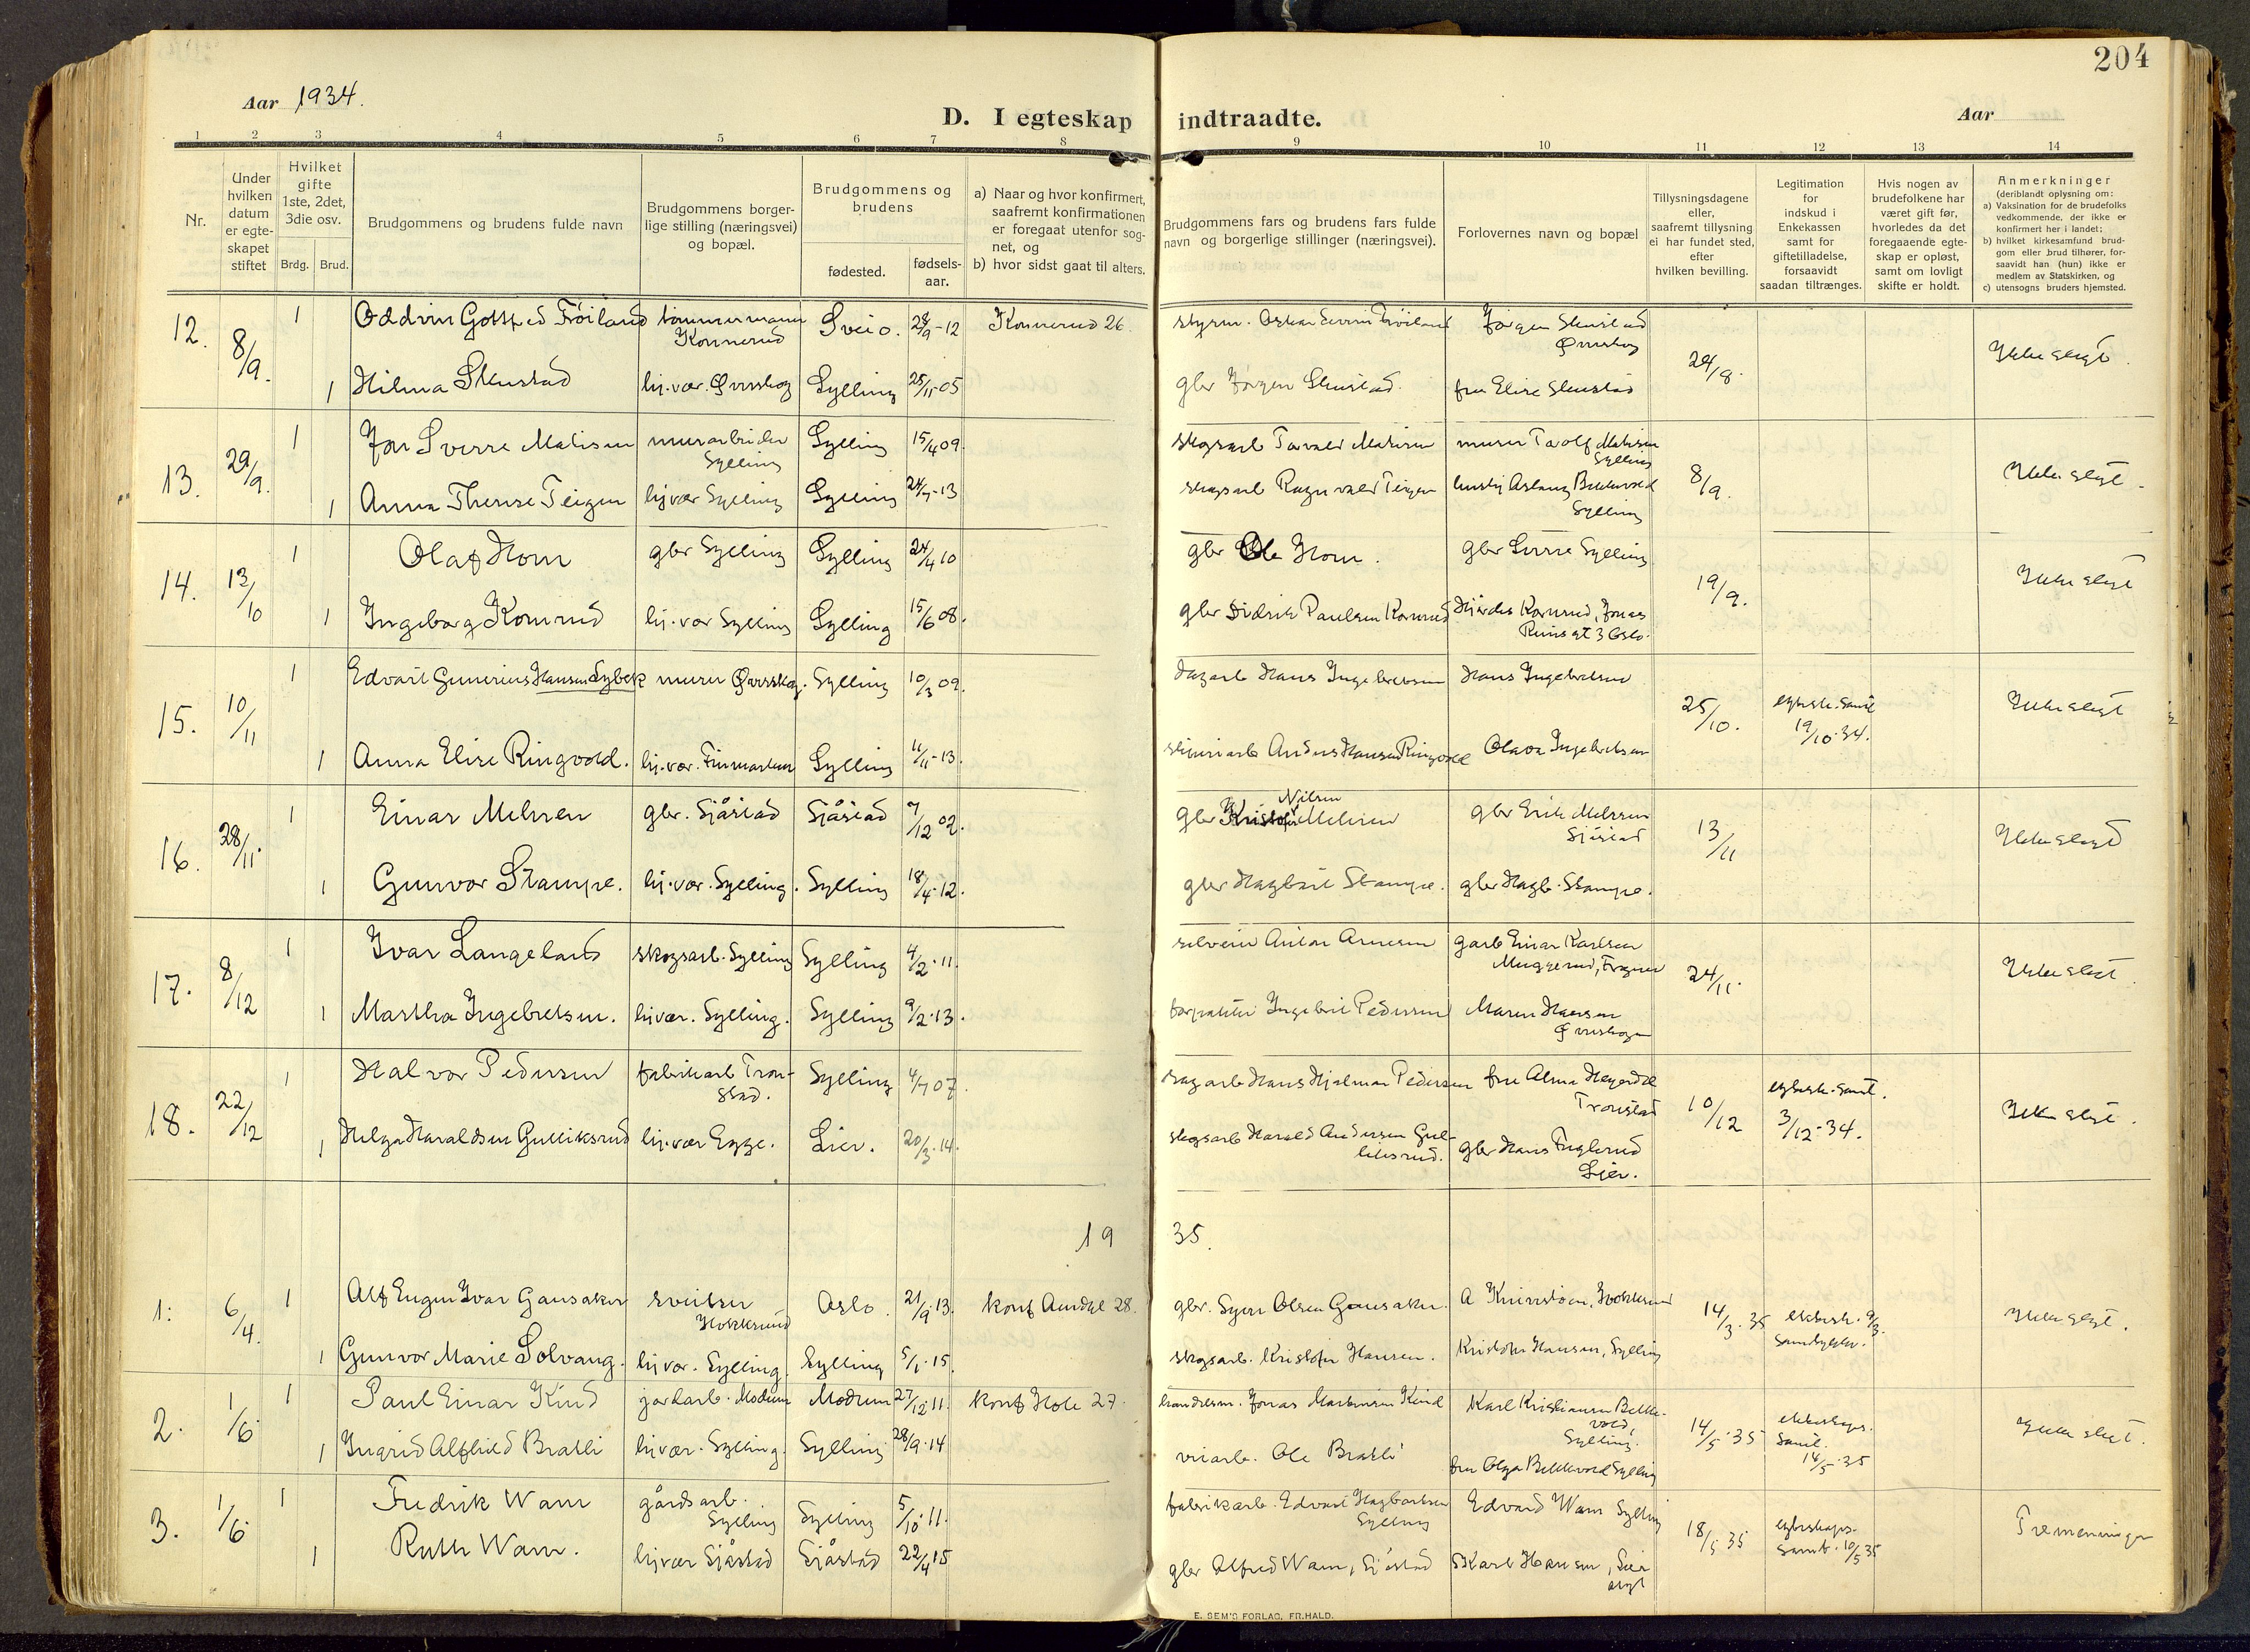 204
Aar 1934.
Aar
D. I egteskap indtraadte.
1 2 3 4 5 6 7 8 9 10 11 12 13 14
Nr.
Under hvilken datum er egte-skapet stiftet
Hvilket gifte 1ste, 2det, 3die osv.
Brdg. Brud.
Brudgommens og brudens fulde navn
Brudgommens borger-lige stilling (næringsvei) og bopæl.
Brudgommens og brudens
fødested.
fødsels-aar.
a) Naar og hvor konfirmert, saafremt konfirmationen er foregaat utenfor sog-net, og
b) hvor sidst gaat til alters.
Brudgommens fars og brudens fars fulde navn og borgerlige stillinger (næringsvei).
Forlovernes navn og bopæl
Tillysningsdagene eller, saafremt tillysning ei har fundet sted, efter hvilken bevilling.
Legitimation for indskud i Enkekassen samt for giftetilladelse, forsaavidt saadan tiltrænges.
Hvis nogen av brudefolkene har været gift før, hvorledes da det foregaaende egte-skap er opløst, samt om lovligt skifte er holdt.
Anmerkninger
(deriblandt oplysning om:
a) Vaksination for de brudefolks vedkommende, der ikke er konfirmert her i landet;
b) hvilket kirkesamfund brud-gom eller brud tilhører, for-saavidt han (hun) ikke er medlem av Statskirken, og
c) utensogns bruders hjemsted.
12. 8/9. 1 Oddvin Gottfred Tröiland tömmermann Konnerud Sveio. 28/9-12 Konnerud 26. styrm. Oskar Tröiland Jörgen Skustad Øvreskog 24/8. Ikke slegt.
1 Hilma Skustad hj.vær. Øvreskog Sylling 25/11-05 gbr Jörgen Skustad. fru Elise Skustad
13. 29/9. 1 Jon Sverre Matisen murarbeider Sylling Sylling 15/4 09. skogsarb Torvald Matisen murer Torolf Matisen Sylling 8/9. Ikke slegt.
1 Anna Therese Teigen hj vær Sylling Sylling 24/7-13 skogsarb Ragnvald Teigen hustj Aslaug Bekkevold Sylling
14. 13/10 1 Olaf Horn gbr Sylling Sylling 24/4 10 gbr Ole Horn. gbr Sverre Sylling 19/9. Ikke slegt
1 Ingeborg Kornrud hj.vær Sylling Sylling 15/6 08. gbr Didrik Paulsen Kornrud Hjördis Kornrud, Jonas Reinsgt 3 Oslo.
15. 10/11 1 Edvart Gunerius Hansen Sybek murer Øvreskog. Sylling 10/3 09. dagarb Hans Ingebretsen Hans Ingebretsen 25/10. egtesk. samt 19/10-34. Ikke slegt
1 Anna Elise Ringvold. hj.vær. Sylling 11/11-13. Anders Hansen Ringvold Olava Ingebretsen
16. 28/11. 1 Einar Mehren gbr. Sjåstad Sjåstad 7/12 02. gbr Kristofer Nilsen Mehren gbr Erik Mehren Sjåstad 13/11 Ikke slegt
1 Gunvor Stampe. hj.vær. Sylling. Sylling 18/4-12. gbr Hagbart Stampe. gbr Hagb. Stampe.
17. 8/12 1 Ivar Langeland skogsarb. Sylling Sylling 4/2-11. selveier Anton Arnesen garb Einar Karlsen Muggerud, 24/11. Ikke slegt.
1 Martha Ingebretsen. hjvær. Sylling. Sylling 9/2-13. forpakter Ingebret Pedersen Maren Hansen Øvreskogen
18. 22/12 1 Halvor Pedersen fabrikarb Tron-stad. Sylling 4/7 07. sagarb Hans Hjalmar Pedersen fru Alma Tronstad 10/12 egtesk. samt. 3/12-34. Ikke slegt.
1 Helga Haraldsen Gulliksrud hj.vær Egge. Lier. 20/3-14. skogsarb Harald Andersen Gul-liksrud. gbr Hans Fuglerud Lier.
1935.
1. 6/4. 1 Alf Eugen Ivar Gansaker sveitser Hokksund Oslo. 21/9-13. konf Auridal 28. gbr. Syver Olsen Gansaker. A Hokksund 14/3-35 ektesk. 9/3. Ikke slegt.
1 Gunvor Marie Solvang. hjvær. Sylling. Sylling 5/1-15. skogsarb. Kristofer Hansen. Kristofer Hansen, Sylling
2. 1/6. 1 Paul Einar Kind jordarb. Modum Modum 27/12-11. konf Hole 27. handelsm. Jonas Martinsen Kind Karl Kristiansen Bekke-vold, Sylling. 14/5-35 ekteskaps. samt. 14/5-35 Ikke slegt.
1 Ingrid Alfhild Bratli hjvær. Sylling. Sylling 28/9-14 veiarb. Ole Bratli fru Olga Bekkevold Sylling
3. 1/6. 1 Fredrik Warn gårdsarb. Sylling Sylling 5/10-11. fabrikarb. Edvart Hagbartsen Sylling Edvard Warn Sylling 18/5 35 egteskaps-samt. 10/5 35 Tremenninger
1 Ruth Warn. hjvær Sjåstad Sjåstad 22/4 15 gbr Alfred Warn, Sjåstad Karl Hansen,
E. SEM'S FORLAG, FR.HALD.